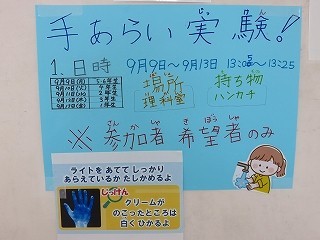 手あらい実験!
1.日時 9月9日~9月13日 13:05~13:25
9月9日(月) 5・6年生
9月10日(火) 4年生
9月11日(水) 2年生
9月12日(木) 3年生
9月13日(金) 1年生
場所
理科室
持ち物
ハンカチ
※参加者 希望者のみ
さんかしゃ きぼうしゃ
ライトを あてて しっかり
あらえているか たしかめるよ
じっけん
クリームが
のこったところは
白く ひかるよ